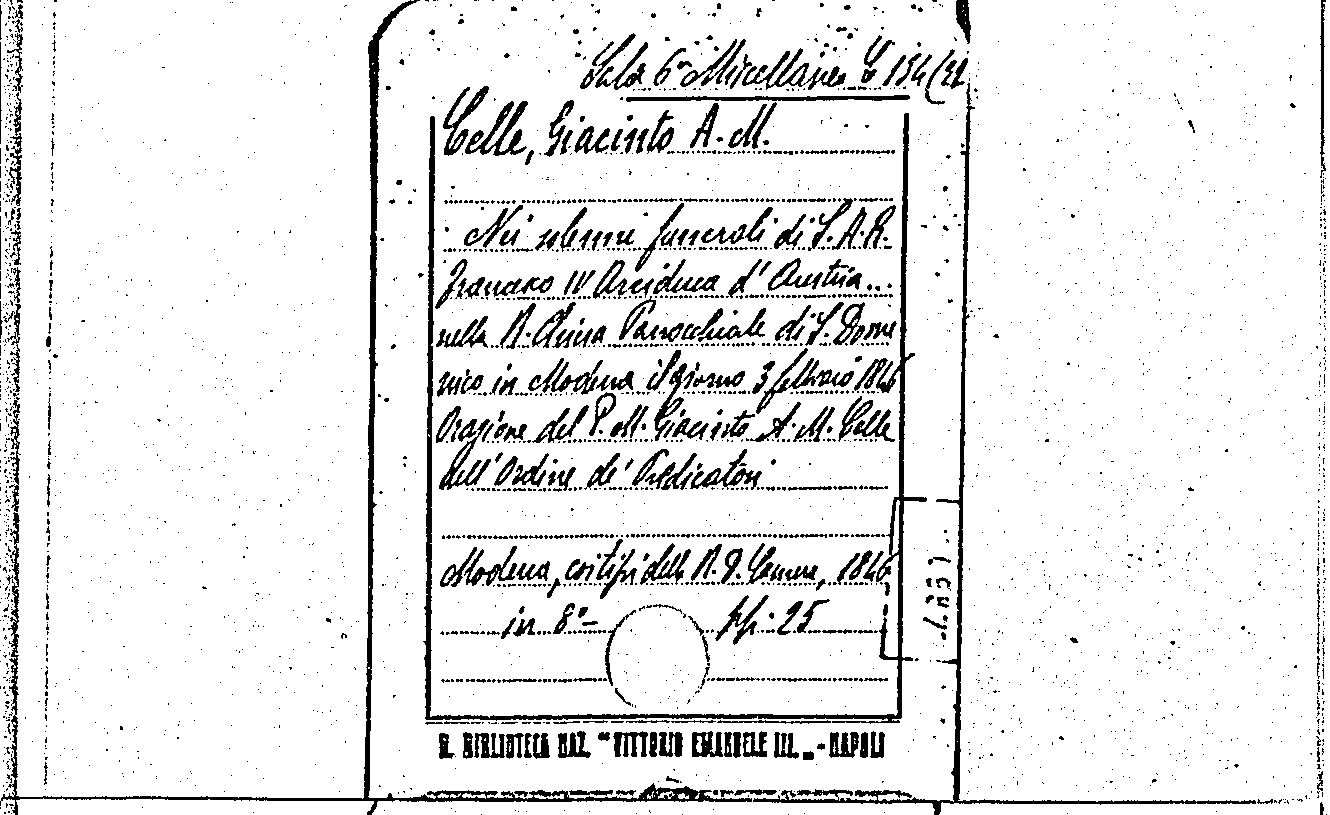 Sala 6ª Miscellanea C 154/22
Celle, Giacinto A. M.
Nei solenni funerali di S. A. R.
Francesco IV Arciduca d' Austria...
nella R. Chiesa Parrocchiale di S. Dome
nico in Modena il giorno 3 febbraio 1846
Orazione del P. M. Giacinto A. M. Celle
dell' Ordine de' Predicatori
Modena, coi tipi della R. D. Camera, 1846
in 8°- pp. 25
R. BIBLIOTECA NAZ. "VITTORIO EMANUELE III." - NAPOLI